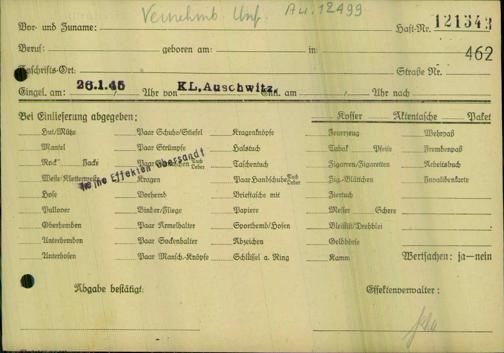 Vernehmb. Au. 12499
Vor- und Zuname: Haft-Nr. 121543
Beruf: geboren am: in 462
Anschrifts-Ort: Straße Nr.
Eingel. am: 26.1.45 Uhr von KL. Auschwitz, Entl. am Uhr nach
Bei Einlieferung abgegeben: Koffer Aktentasche Paket
Hut/Mütze Paar Schuhe/Stiefel Kragenknöpfe Feuerzeug Wehrpaß
Mantel Paar Strümpfe Halstuch Tabak Pfeife Fremdenpaß
Rock Jacke Paar Gamaschen Tuch Leder Taschentuch Zigarren/Zigaretten Arbeitsbuch
Weste/Kletterweste Kragen Paar Handschuhe Tuch Leder Zig.-Blättchen Invalidenkarte
keine Effekten übersandt
Hose Vorhemd Brieftasche mit Ziertuch
Pullover Binder/Fliege Papiere Messer Schere
Oberhemden Paar Ärmelhalter Sporthemd/Hosen Bleistift/Drehblei
Unterhemden Paar Sockenhalter Abzeichen Geldbörse
Unterhosen Paar Mansch.-Knöpfe Schlüssel a. Ring Kamm Wertsachen: ja—nein
Abgabe bestätigt: Effektenverwalter: